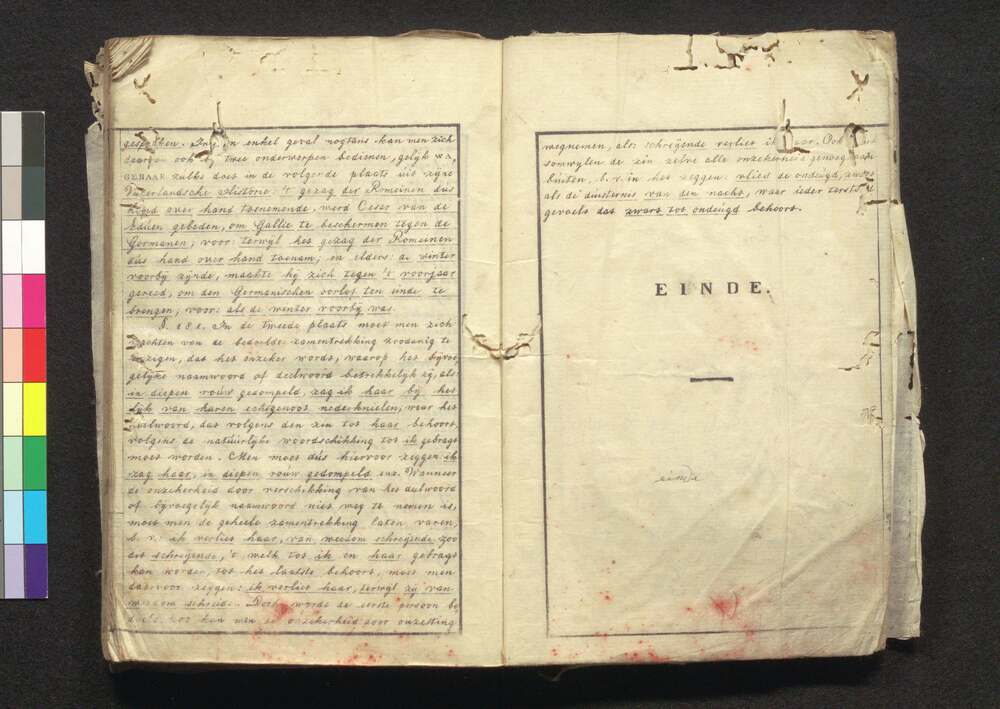 gesproken. In een enkel geval nogtans kan men zich
daarvan ook bij twee onderwerpen bedienen, gelijk WA,
GENAAR zulks doet in de volgende plaats uit zijne
Vaderlandsche Historie: 't gezag der Romeinen dus
hand over hand toenemende, werd Cesar van de
Eduen gebeden, om Gallie te beschermen tegen de
Germanen; voor: terwyl het gezag der Romeinen
dus hand over hand toenam; en elders: de winter
voorby zijnde, maakte hij zich tegen 't voorjaar
gereed, om den Germanischen oorlof ten einde te
brengen; voor: als de winter voorby was.
§. 181. In de tweede plaats moet men zich
wachten van de bedoelde zamentrekking zoodanig te
bezigen, dat het onzeker wordt, waarop het bijvoe
gelijke naamwoord of deelwoord betrekkelyk zij, als:
in diepen rouw gedompeld, zag ik haar bij het
lijk van haren echtgenoot nederknielen; waar het
deelwoord, dat volgens den zin tot haar behoort,
volgens de natuurlyke woordschikking tot ik gebragt
moet worden. Men moet dus hiervoor zeggen ik
zag haar, in diepen rouw gedompeld enz. Wanneer
de onzekerheid door verschikking van het deelwoord
of bijvoegelijk naamwoord niet weg te nemen is,
moet men de geheele zamentrekking laten varen,
b. v.: ik verliet haar, van weedom schreijende, zoo
dat schreijende, 't welk tot ik en haar gebragt
kan worden, tot het laatste behoort, moet men
daarvoor zeggen: ik verliet haar, terwyl zij van
weedom schreide. Doch wordt de eerste persoon be
doeld, dan kan men de onzekerheid door omzetting
wegnemen, als: schreijende verliet ik haar. Ook
somwylen de zin zelve alle onzekerheid genoegzaam
buiten, b. v. in het zeggen: vlied de ondeugd, zwart
als de duisternis van den nacht, waar ieder terstond
gevoelt dat zwart tot ondeugd behoort.
EINDE.
einde